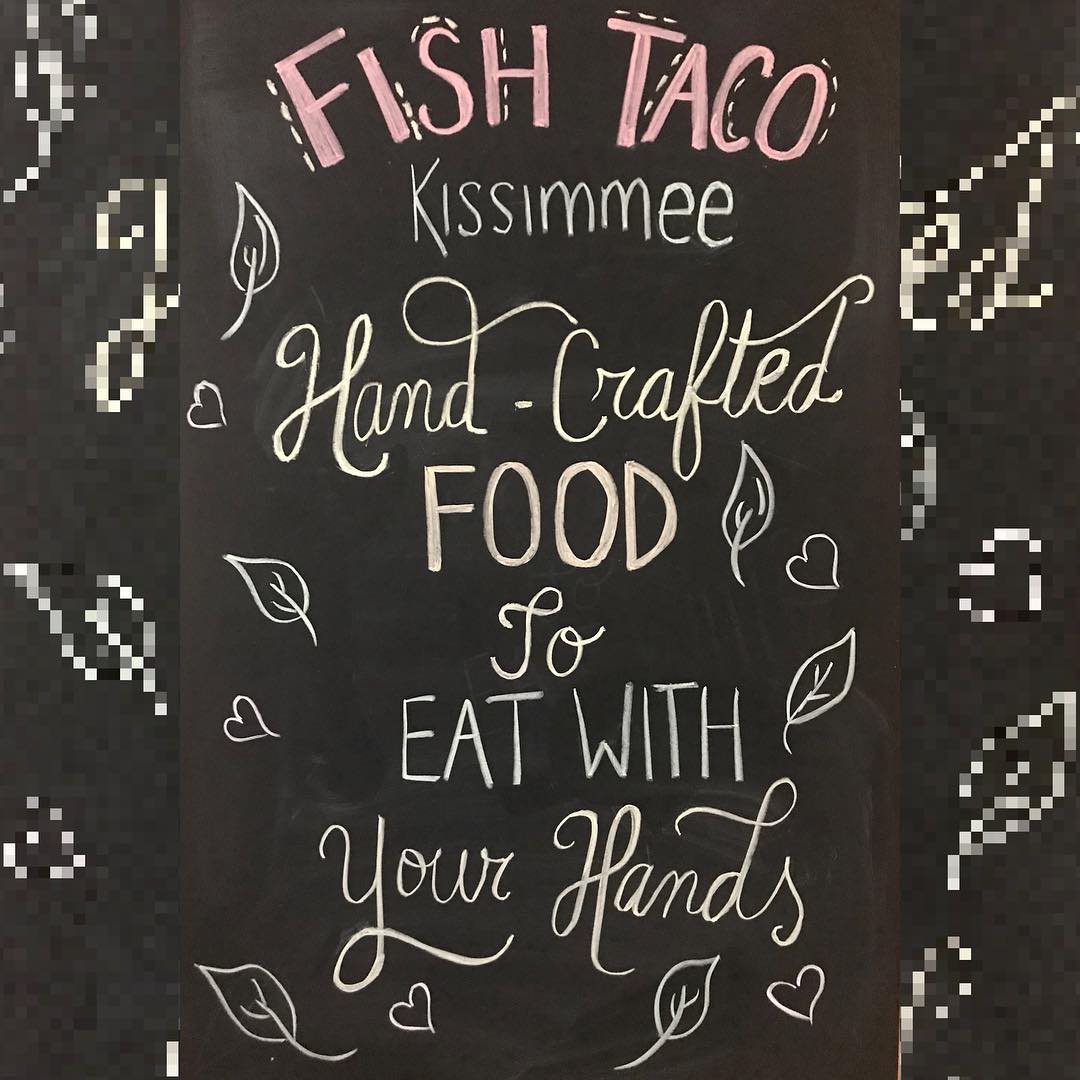 FISH TACO
Kissimmee
Hand-Crafted
FOOD
To
EAT WITH
Your Hands